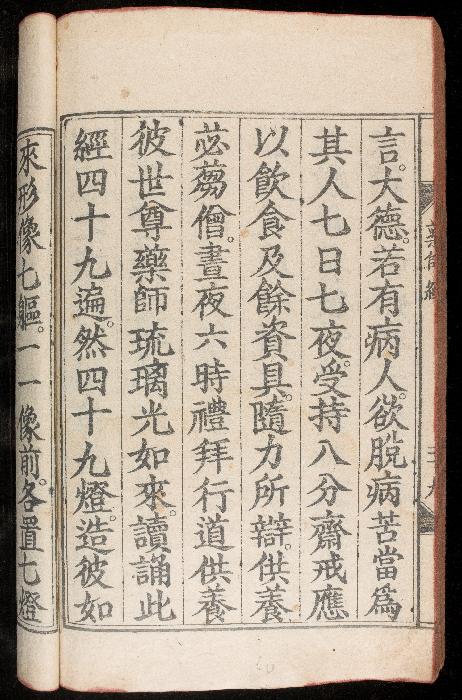 藥師經
言。大德。若有病人。欲脫病苦當為
其人七日七夜。受持八分齋戒應
以飲食及餘資具。隨力所辯。供養
苾蒭僧。晝夜六時禮拜行道供養
彼世尊藥師琉璃光如來。讀誦此
經四十九遍。然四十九燈。造彼如
來形像七軀。一一像前。各置七燈